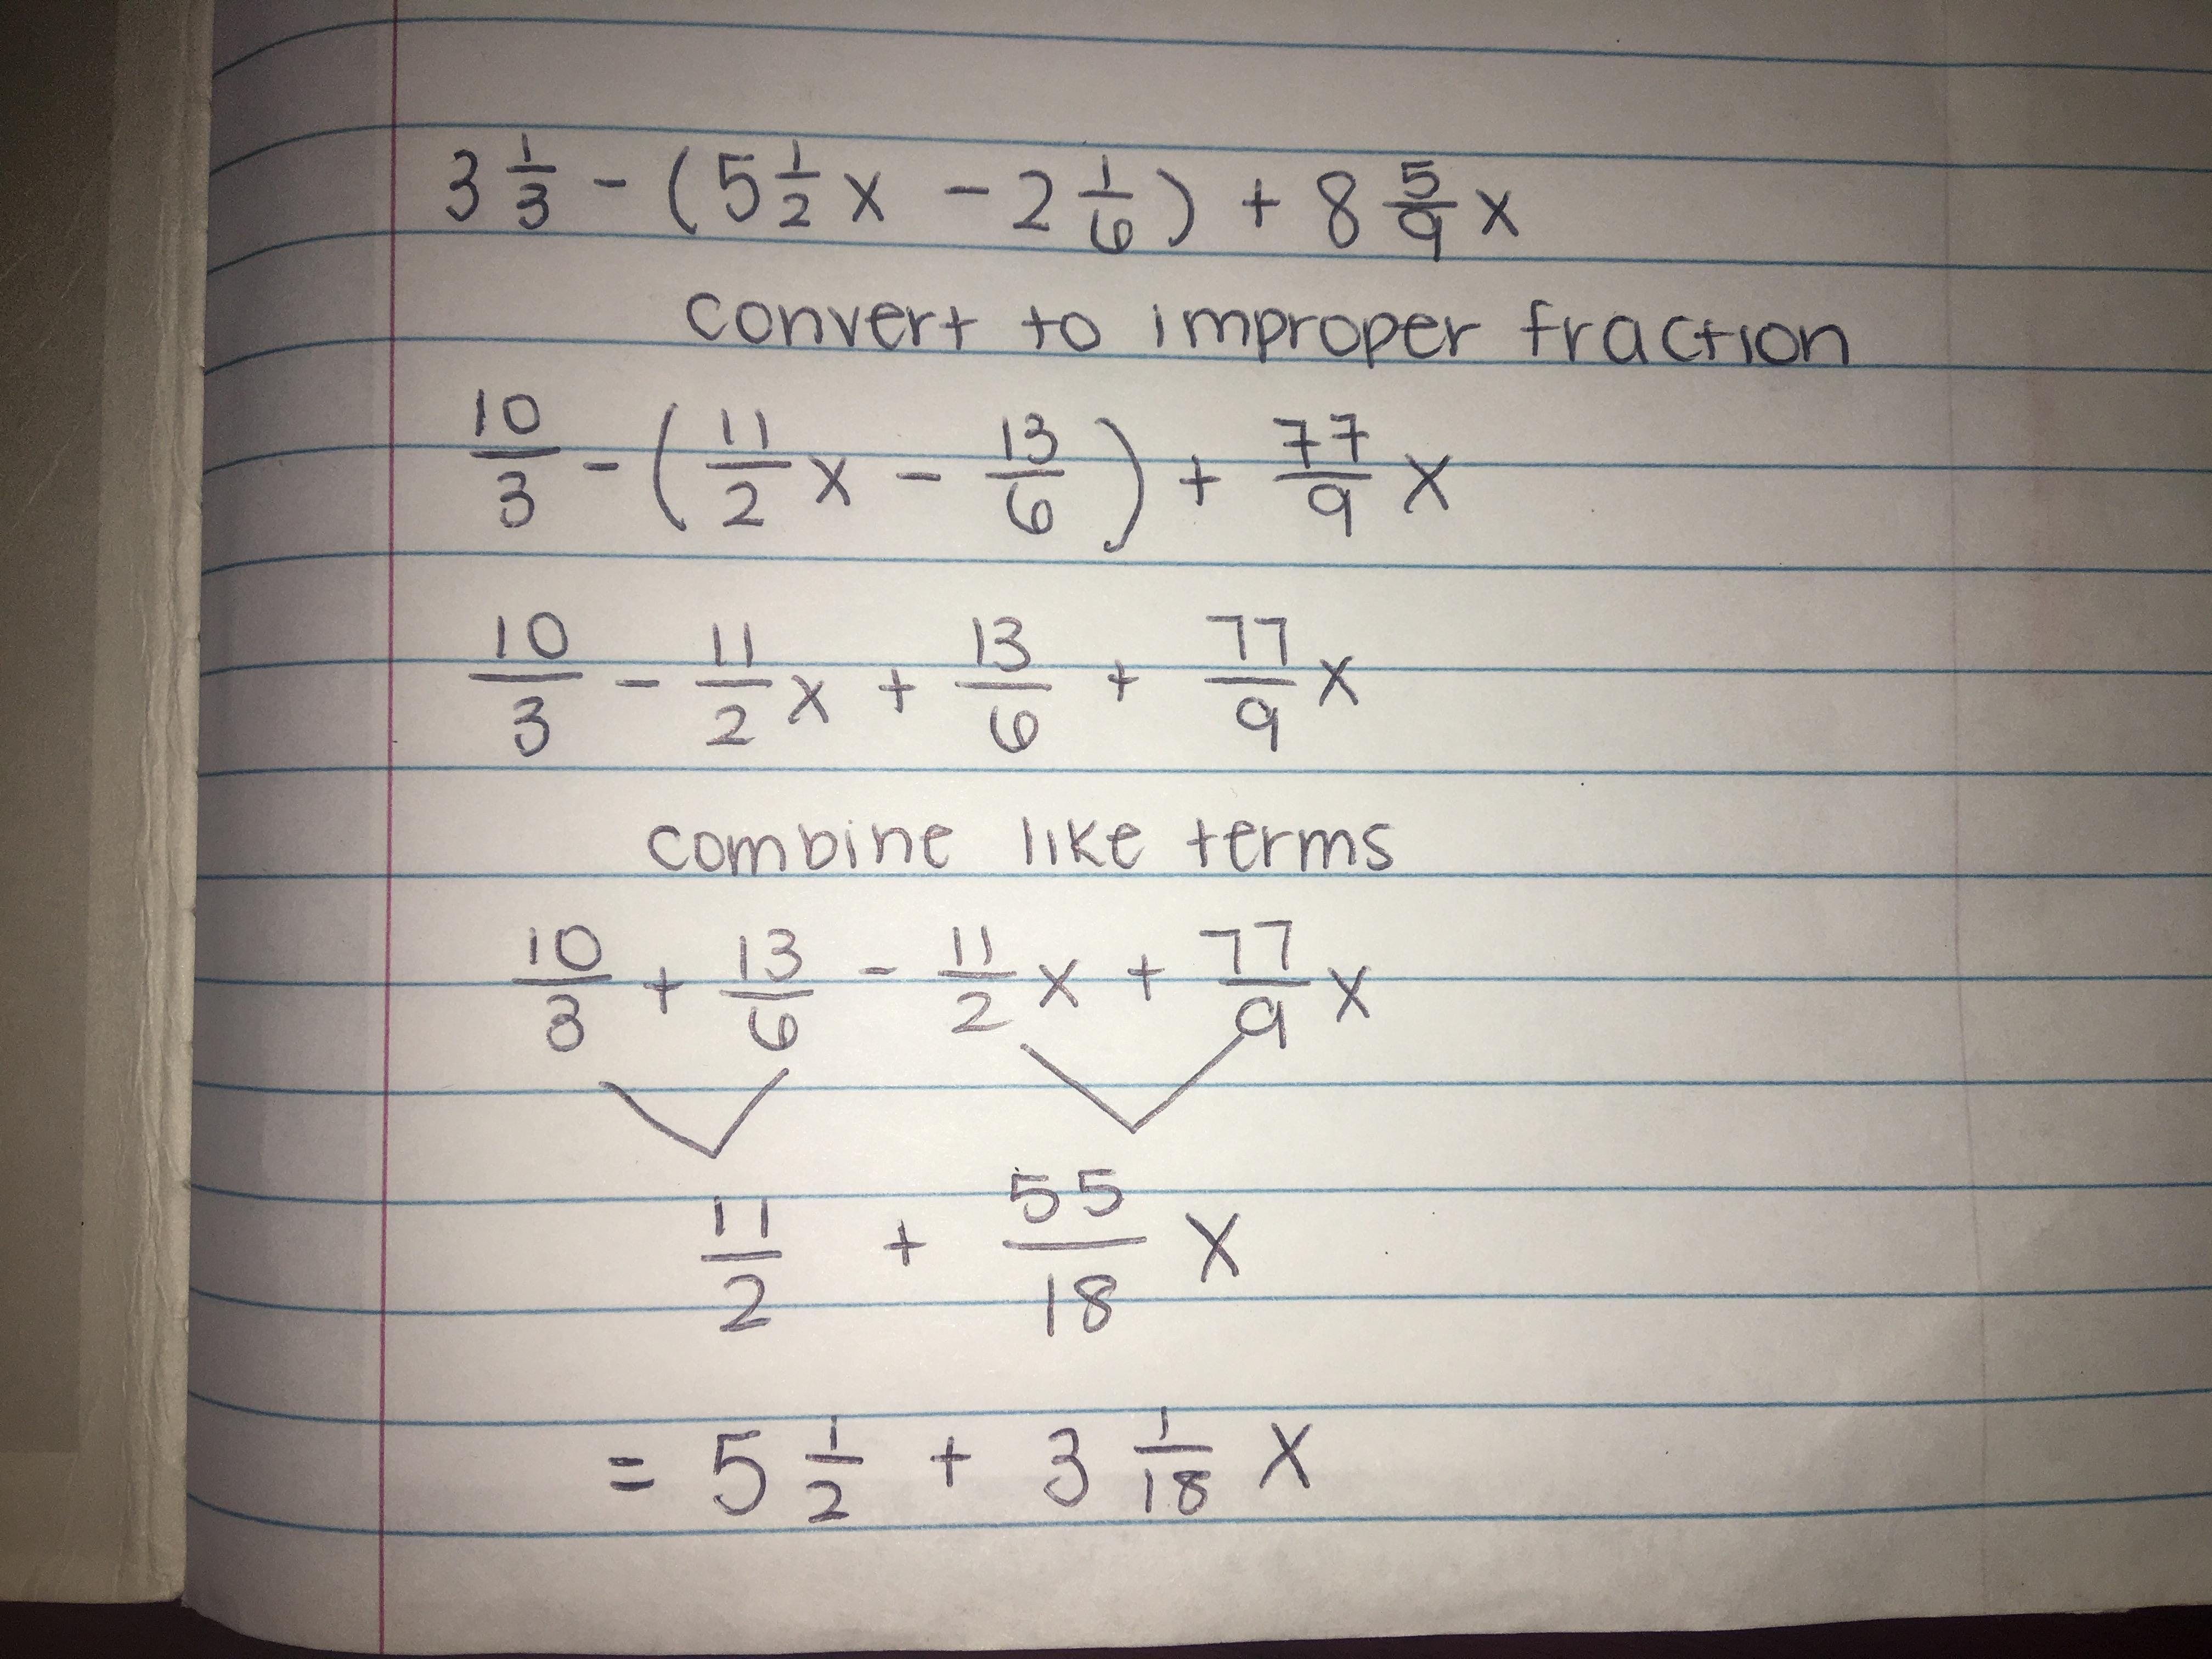 3 1/3 - (5 1/2 x - 2 1/6) + 8 5/9 x
convert to improper fraction
10/3 - (11/2 x - 13/6) + 77/9 x
10/3 - 11/2 x + 13/6 + 77/9 x
combine like terms
10/3 + 13/6 - 11/2 x + 77/9 x
11/2 + 55/18 x
= 5 1/2 + 3 1/18 x